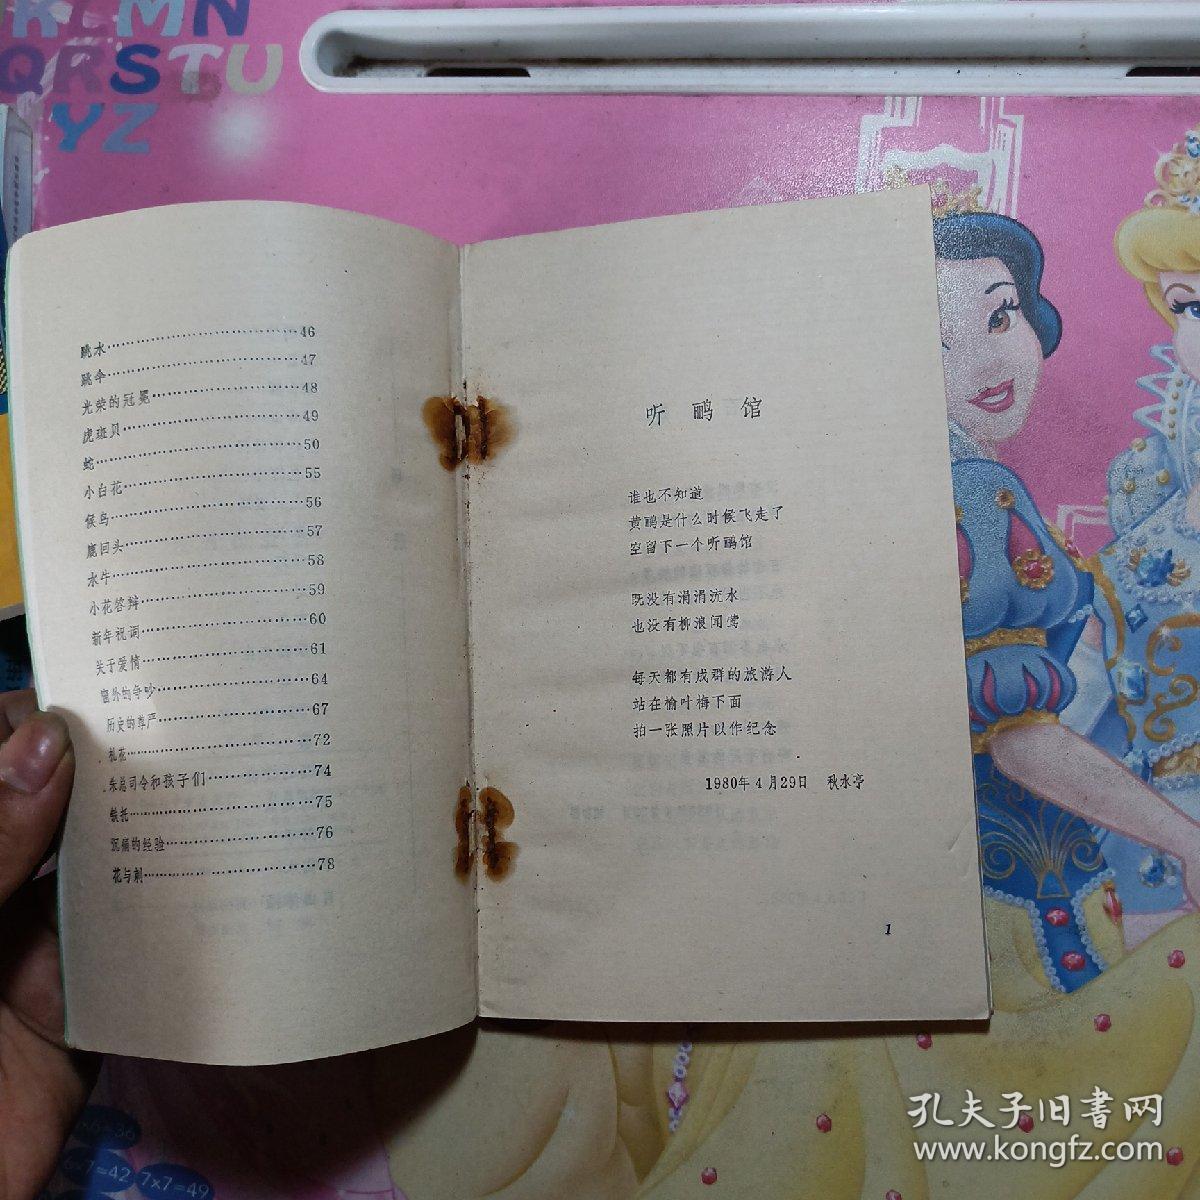 KLMN
QRSTU
YZ
跳水……46
跳伞……47
光荣的冠冕……48
虎斑贝……49
蛇……50
小白花……55
候鸟……56
鹿回头……57
水牛……58
小花答辩……59
新年祝词……60
关于爱情……61
窗外的争吵……64
历史的尊严……67
礼花……72
朱总司令和孩子们……74
铁托……75
沉痛的经验……76
花与刺……78
听鹂馆
谁也不知道
黄鹂是什么时候飞走了
空留下一个听鹂馆
既没有涓涓流水
也没有柳浪闻莺
每天都有成群的旅游人
站在榆叶梅下面
拍一张照片以作纪念
1980年4月29日 秋水亭
1
6×7=42
7×7=49
孔夫子旧書网
www.kongfz.com